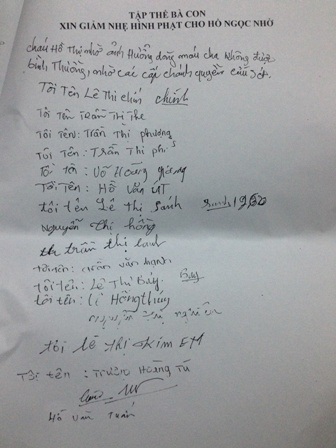 TẬP THỂ BÀ CON
XIN GIẢM NHẸ HÌNH PHẠT CHO HỒ NGỌC NHỞ
cháu Hồ Thị nhở ảnh Hưởng dòng máu cha không được
bình Thường, nhờ các cấp chính quyền cứu xét.
Tôi Tên Lê Thị chín chính
Tôi Tên Trần Thị Thê
Tôi Tên: Trần Thị phương
Tôi Tên: Trần Thị
Tôi tên: Võ Hoàng giang
Tôi Tên: Hồ Văn UT
tôi tên Lê thị Sanh
Nguyễn thị hồng
trần thị lan
tôi tên: văn hạnh
tôi tên: Lê Thị Bảy Bảy
tôi tên: Hồng thủy
tôi lê thị Kim EM
Tôi tên: Hoàng Tú
Hồ văn tuấn